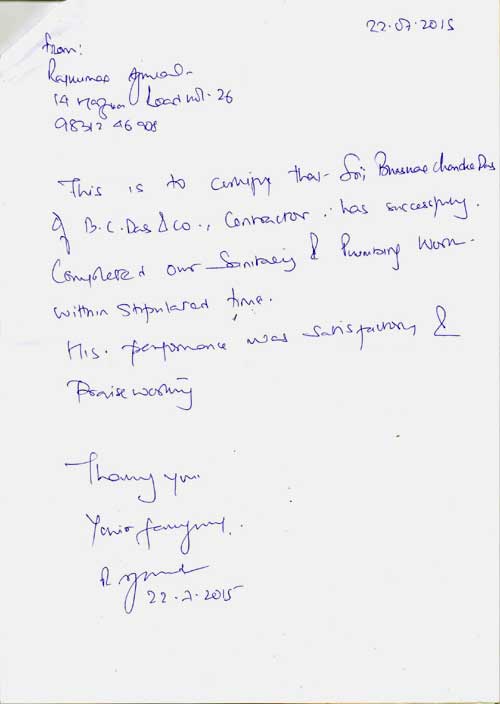 22.07.2015
From:
Rajkumar
14
98312 46908
This is to certify that Sri Chandra Das
of B.C. Das & Co., Contractor, has successfully
Completed our Sanitary & Plumbing Work
within stipulated time.
His performance was satisfactory &
Praiseworthy
Thanking you
Yours faithfully,
22.7.2015